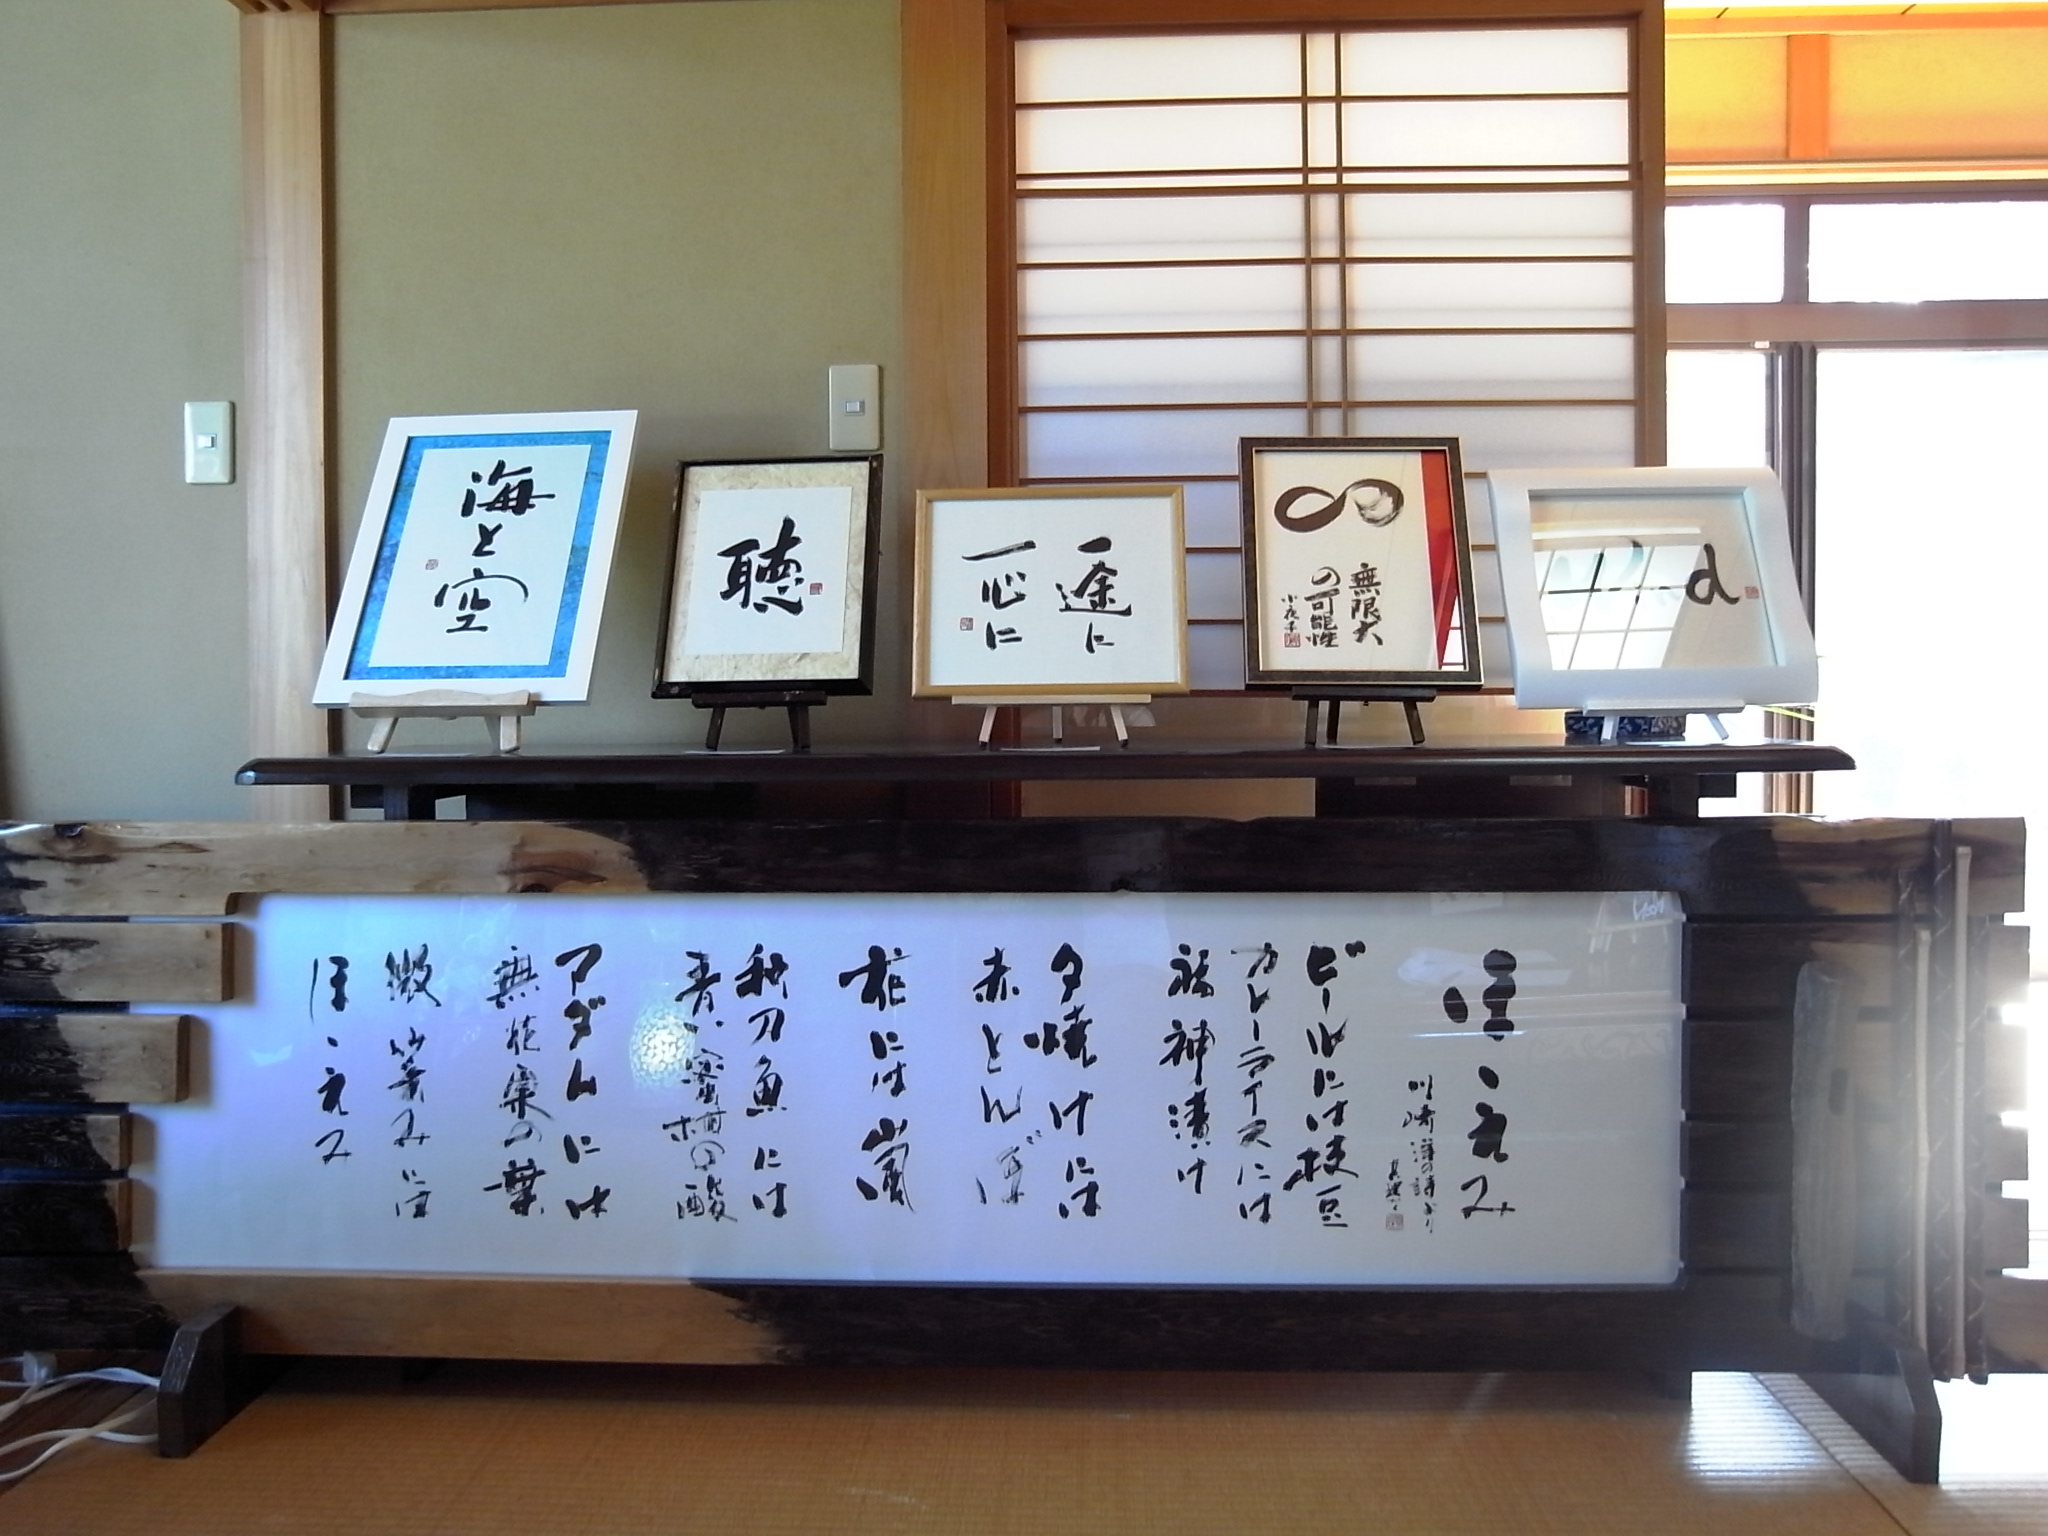 海と
空
聴
一途に
一心に
無限大
の可能性
ほゝえみ
川崎洋の詩より
ビールには枝豆
カレーライスには
福神漬け
夕焼けには
赤とんぼ
花には嵐
秋刀魚には
青い蜜柑の酸
アダムには
無花果の葉
微笑みには
ほゝえみ